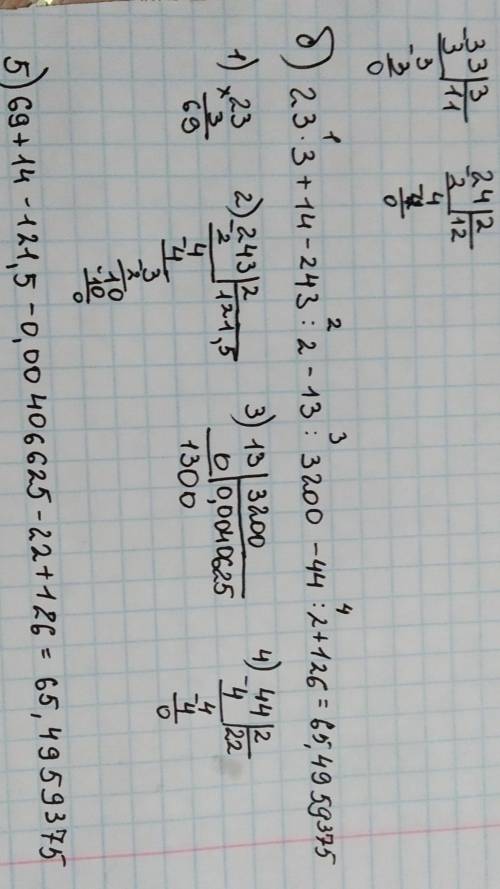 -33|3
3 11
-3
3
0
-24|2
2 12
-4
4
0
б) 23·3+14-243:2-13:3200-44:2+126=65,4959375
1 2 3 4
1) ×23
3
69
2) -243|2
2 121,5
-4
4
-3
2
-10
10
0
3) 13|3200
0 0,0040625
1300
4) -44|2
4 22
-4
4
0
5) 69+14-121,5-0,00406625-22+126=65,4959375